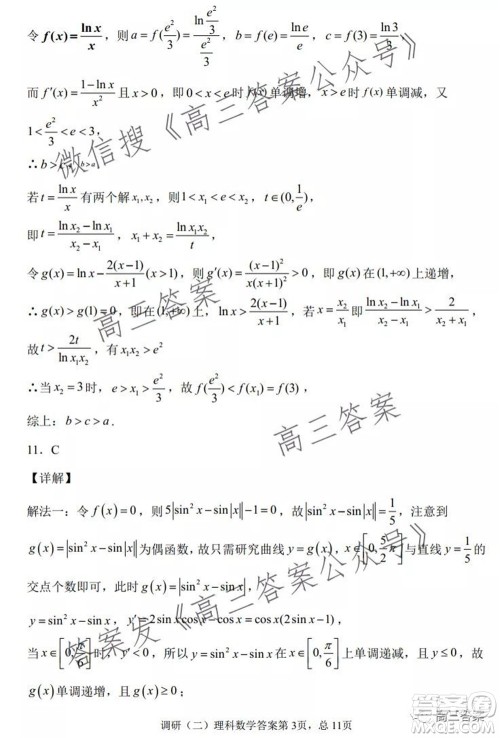 令 f(x)=lnx/x，则 a=f(e²/3)=ln(e²/3)/(e²/3)，b=f(e)=lne/e，c=f(3)=ln3/3
而 f′(x)=(1-lnx)/x² 且 x>0，即 0<x<e 时 f(x) 单调增，x>e 时 f(x) 单调减，又
1<e²/3<e<3，
∴b>c，b>a
若 t=lnx/x 有两个解 x₁,x₂，则 1<x₁<e<x₂，t∈(0,1/e)，
即 t=(lnx₂-lnx₁)/(x₂-x₁)，x₁+x₂=lnx₁x₂/t，
令 g(x)=lnx-2(x-1)/(x+1)(x>1)，则 g′(x)=(x-1)²/(x(x+1)²)>0，即 g(x) 在 (1,+∞) 上递增，
∴g(x)>g(1)=0，即在 (1,+∞) 上，lnx>2(x-1)/(x+1)，若 x=x₂/x₁ 即 (lnx₂-lnx₁)/(x₂-x₁)>2/(x₂+x₁)，
故 t>2t/lnx₁x₂，有 x₁x₂>e²
∴当 x₂=3 时，e>x₁>e²/3，故 f(e²/3)<f(x₁)=f(3)，
综上：b>c>a．
11．C
【详解】
解法一：令 f(x)=0，则 5|sin²x-sin|x||-1=0，故 |sin²x-sin|x||=1/5，注意到
g(x)=|sin²x-sin|x|| 为偶函数，故只需研究曲线 y=g(x)，x∈[0,5π/2] 与直线 y=1/5 的
交点个数即可，此时 g(x)=|sin²x-sinx|，
y=sin²x-sinx，y′=2sinxcosx-cosx=cosx(2sinx-1)，
当 x∈[0,π/6] 时，y′<0，所以 y=sin²x-sinx 在 x∈[0,π/6] 上单调递减，且 y≤0，故
g(x) 单调递增，且 g(x)≥0；
调研（二）理科数学答案第 3页，总 11页
微信搜《高三答案公众号》
高三答案
高三答案
答案发《高三答案公众号》
高三答案